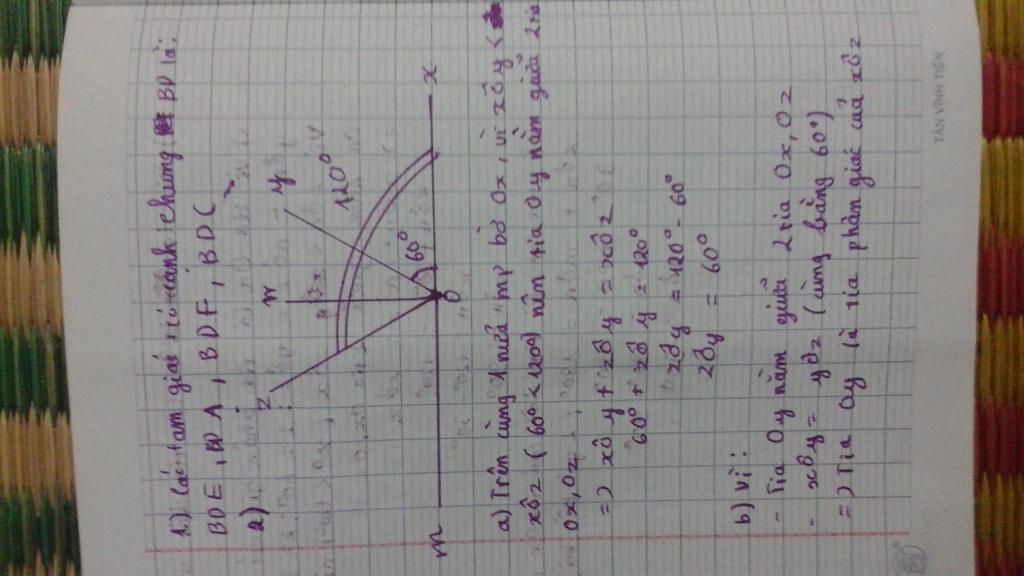 1.) Các tam giác có cạnh chung BD là:
BDE, BDA, BDF, BDC
2)
z
n
y
120°
60°
m
O
x
a) Trên cùng 1 nửa mp bờ Ox, vì xÔy <
xÔz (60° < 120°) nên tia Oy nằm giữa 2 tia
Ox, Oz
=) xÔy + zÔy = xÔz
60° + zÔy = 120°
zÔy = 120° - 60°
zÔy = 60°
b) Vì:
- Tia Oy nằm giữa 2 tia Ox, Oz
- xÔy = yÔz (cùng bằng 60°)
=) Tia Oy là tia phân giác của xÔz
TÂN VĨNH TIẾN